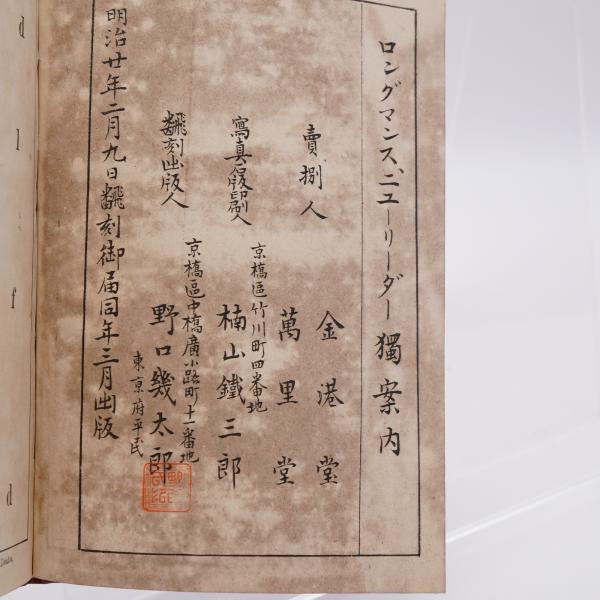 ロングマンス、ニユーリーダー獨案内
賣捌人
金港堂
萬里堂
寫真石版印刷人
京橋區竹川町四番地
楠山鐵三郎
飜刻出版人
京橋區中橋廣小路町十一番地
野口幾太郎
東京府平民
明治廿年二月九日飜刻御届同年三月出版
d
l
f
d
London.